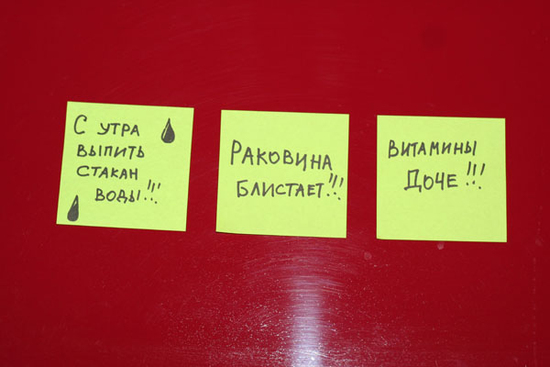 С УТРА
ВЫПИТЬ
СТАКАН
ВОДЫ!!!
РАКОВИНА
БЛИСТАЕТ!!!
ВИТАМИНЫ
ДОЧЕ!!!